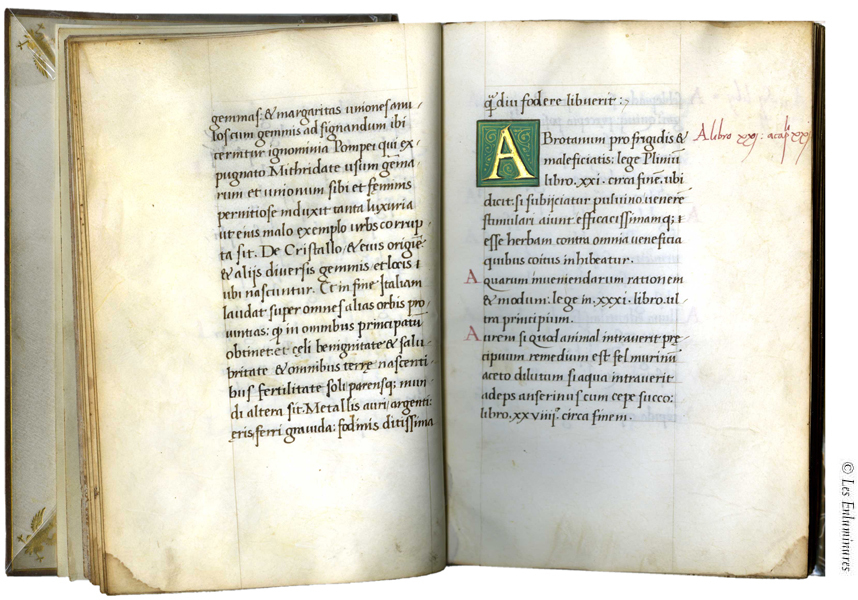 gemmas: & margaritas uniones anu,
los cum gemmis ad signandum ibi
cernitur ignominia Pompei qui ex,
pugnato Mithridate usum gēma,
rum et unionum sibi et feminis
pernitiose induxit tanta luxuria
ut eius malo exemplo urbs corrup,
ta sit. De Cristallo & eius origiē:
& alijs diversis gemmis et locis
ubi nascuntur. Et in fine Italiam
laudat super omnes alias orbis pro,
vintias: qp in omnibus principatū
obtinet: et celi benignitate & salu,
britate & omnibus terre nascenti,
bus fertilitate soli parensq; mun,
di altera sit. Metallis auri, argenti:
eris, ferri gravida: fodinis ditissima
q̄ diu fodere libuerit:
ABrotanum pro frigidis &
maleficiatis: lege Plinii
libro. xxi. circa finē. ubi
dicit: si subijciatur pulvino venerē
stimulari aiunt efficacissimamq;
esse herbam contra omnia veneficia
quibus coitus inhibeatur.
A libro xxj: a cap̄ xxj
Aquarum inveniendarum rationem
& modum: lege in. xxxi. libro. ul,
tra principium.
Aurem si quod animal intraverit pre,
cipuum remedium est fel murinū
aceto dilutum si aqua intraverit
adeps anserinus cum cepe succo:
libro. xxviiij. circa finem.
© Les Enluminures